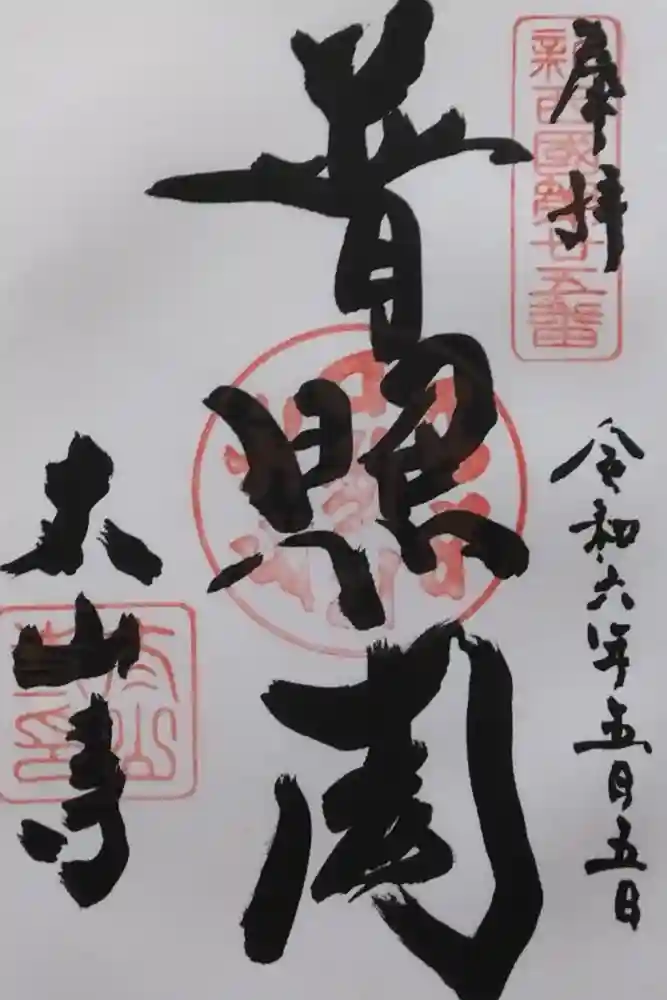 奉拝
新西國第廿五番
令和六年五月五日
普照閣
太山寺